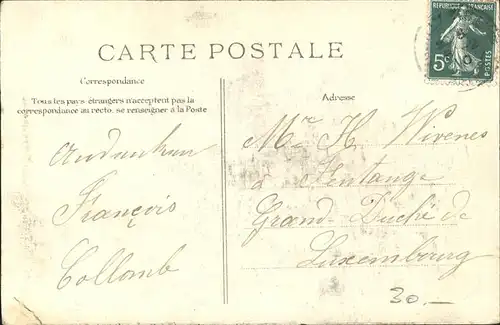 RÉPUBLIQUE FRANÇAISE
5c
POSTES
CARTE POSTALE
Correspondance
Tous les pays étrangers n'acceptent pas la
correspondance au recto. se renseigner à la Poste
François
Collomb
Adresse
Mr H. Wirenes
à Hentange
Grand-Duché de
Luxembourg
30.—